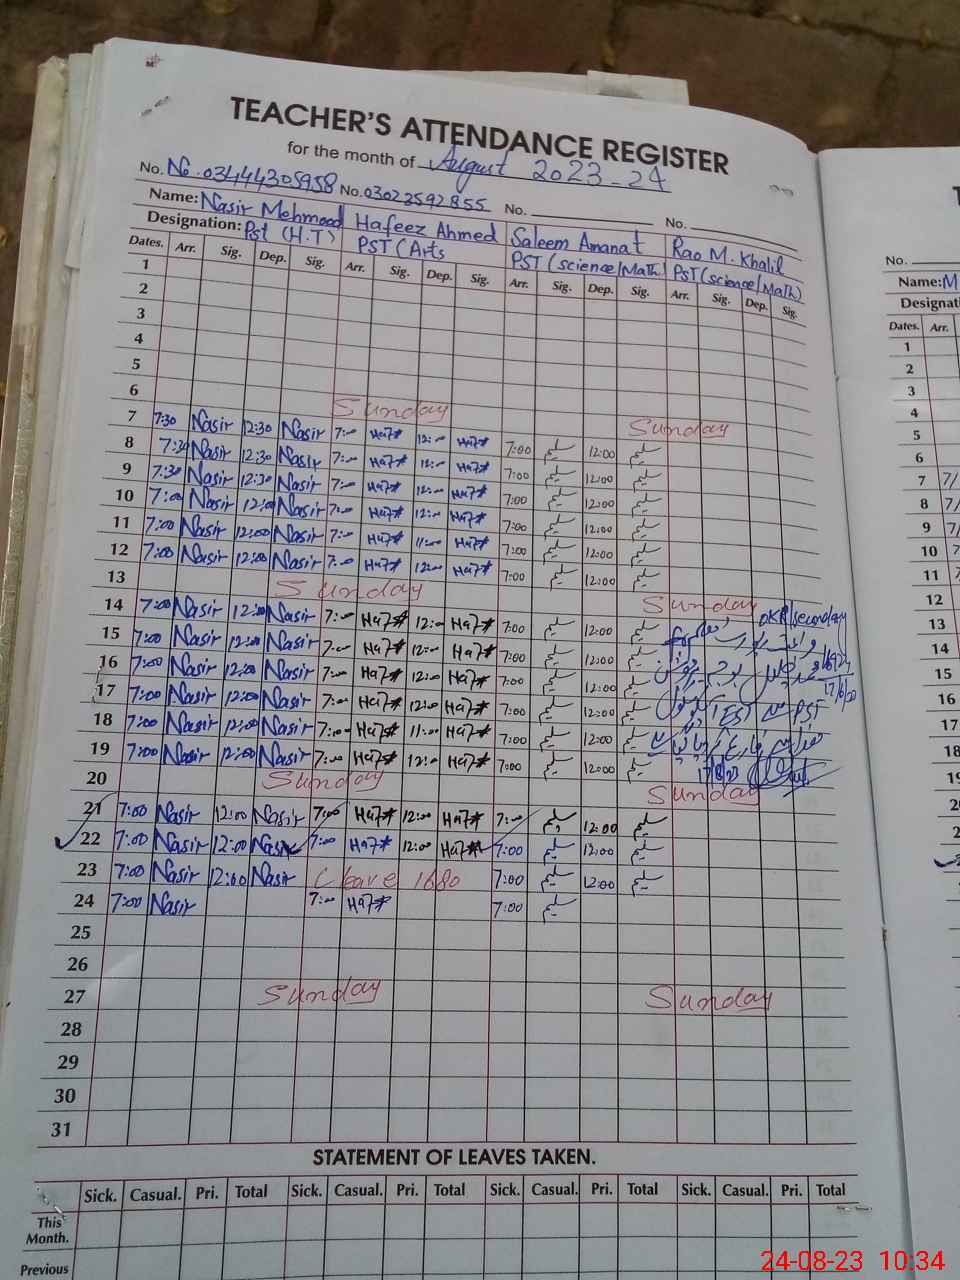 TEACHER'S ATTENDANCE REGISTER
for the month of August 2023-24
No. No. 03444305958 No. 03023592855 No. No.
Name: Nasir Mehmood Hafeez Ahmed Saleem Amanat Rao M. Khalil
Designation: Pst (H.T) PST (Arts PST (science/Math) PST (science/Math)
Dates. Arr. Sig. Dep. Sig. Arr. Sig. Dep. Sig. Arr. Sig. Dep. Sig. Arr. Sig. Dep. Sig.
1
2
3
4
5
6 Sunday Sunday
7 7:30 Nasir 12:30 Nasir 7:00 Haf# 12:00 Haf# 7:00 سلیم 12:00 سلیم
8 7:30 Nasir 12:30 Nasir 7:00 Haf# 12:00 Haf# 7:00 سلیم 12:00 سلیم
9 7:30 Nasir 12:30 Nasir 7:00 Haf# 12:00 Haf# 7:00 سلیم 12:00 سلیم
10 7:00 Nasir 12:00 Nasir 7:00 Haf# 12:00 Haf# 7:00 سلیم 12:00 سلیم
11 7:00 Nasir 12:00 Nasir 7:00 Haf# 11:00 Haf# 7:00 سلیم 12:00 سلیم
12 7:00 Nasir 12:00 Nasir 7:00 Haf# 12:00 Haf# 7:00 سلیم 12:00 سلیم
13 Sunday Sunday
14 7:00 Nasir 12:00 Nasir 7:00 Haf# 12:00 Haf# 7:00 سلیم 12:00 سلیم
15 7:00 Nasir 12:00 Nasir 7:00 Haf# 12:00 Haf# 7:00 سلیم 12:00 سلیم
16 7:00 Nasir 12:00 Nasir 7:00 Haf# 12:00 Haf# 7:00 سلیم 12:00 سلیم
17 7:00 Nasir 12:00 Nasir 7:00 Haf# 12:00 Haf# 7:00 سلیم 12:00 سلیم
18 7:00 Nasir 12:00 Nasir 7:00 Haf# 11:00 Haf# 7:00 سلیم 12:00 سلیم
19 7:00 Nasir 12:00 Nasir 7:00 Haf# 12:00 Haf# 7:00 سلیم 12:00 سلیم
20 Sunday Sunday
21 7:00 Nasir 12:00 Nasir 7:00 Haf# 12:00 Haf# 7:00 سلیم 12:00 سلیم
22 7:00 Nasir 12:00 Nasir 7:00 Haf# 12:00 Haf# 7:00 سلیم 12:00 سلیم
23 7:00 Nasir 12:00 Nasir C leave 7:00 سلیم 12:00 سلیم
24 7:00 Nasir 7:00 Haf# 7:00 سلیم
25
26
27 Sunday Sunday
28
29
30
31
STATEMENT OF LEAVES TAKEN.
Sick. Casual. Pri. Total Sick. Casual. Pri. Total Sick. Casual. Pri. Total Sick. Casual. Pri. Total
This Month.
Previous
No.
Name: M
Designati
Dates. Arr.
1
2
3
4
5
6
7 7/
8 7/
9 7/
10
11
12
13
14
15
16
17
18
19
24-08-23 10:34